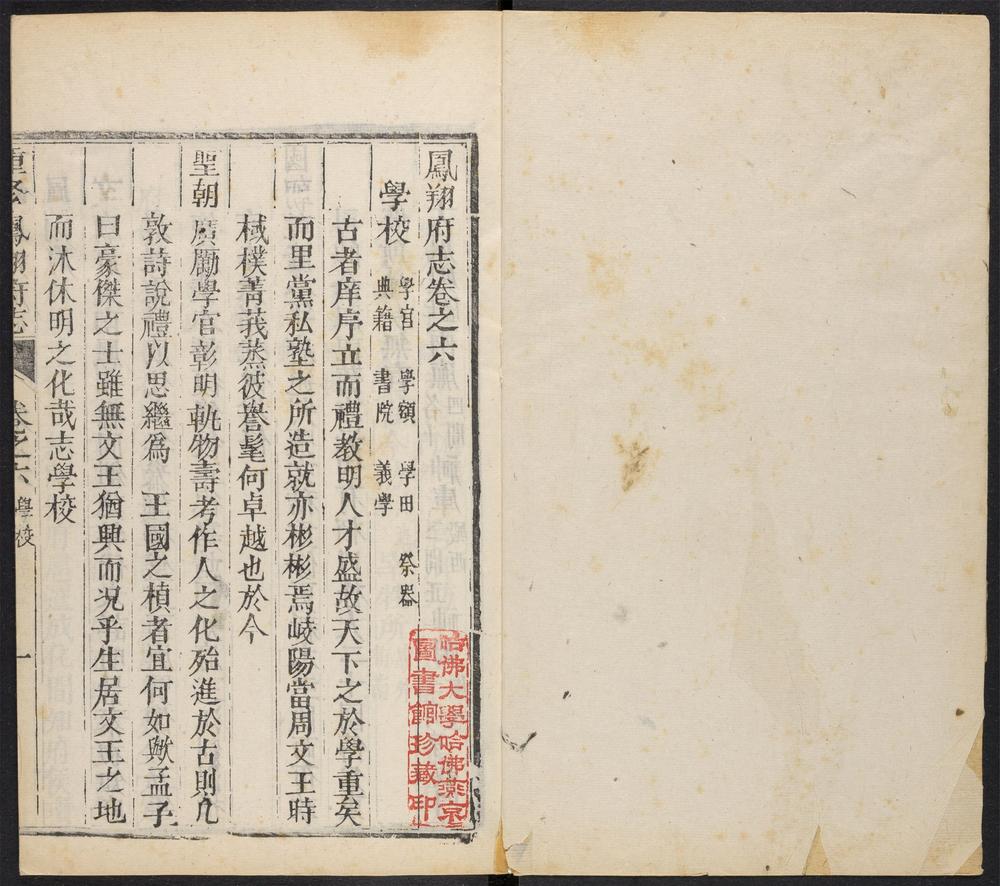 鳳翔府志卷之六
學校 學官 學額 學田 祭器
典籍 書院 義學
古者庠序立而禮教明人才盛故天下之於學重矣
而里黨私塾之所造就亦彬彬焉岐陽當周文王時
棫樸菁莪蒸彼譽髦何卓越也於今
聖朝廣勵學官彰明軌物壽考作人之化殆進於古則凡
敦詩說禮以思繼爲 王國之楨者宜何如歟孟子
曰豪傑之士雖無文王猶興而況乎生居文王之地
而沐休明之化哉志學校
重修鳳翔府志 卷之六 學校 一
哈佛大學哈佛燕京
圖書館珍藏印